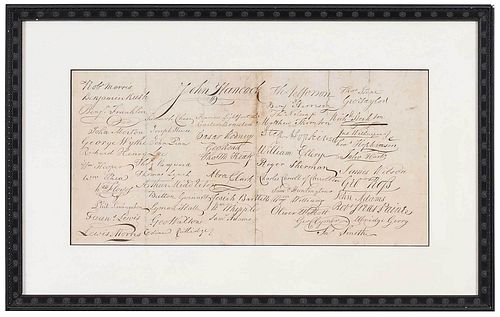 John Hancock
Robt Morris
Benjamin Rush
Benj. Franklin
John Morton
George Wythe
Richard Henry Lee
Wm Paca
Phil. Livingston
Frans. Lewis
Lewis Morris
Joseph Hewes
John Penn
Tho Heyward
Thomas Lynch
Arthur Middleton
Button Gwinnett
Lyman Hall
Geo Walton
Edward Rutledge
Caesar Rodney
Geo Read
Tho M:Kean
Abra Clark
Josiah Bartlett
Wm Whipple
Saml Adams
Th Jefferson
Benj Harrison
Ths Nelson jr
Matthew Thornton
Step Hopkins
William Ellery
Roger Sherman
Charles Carroll of Carrollton
Saml Huntington
Wm Williams
Oliver Wolcott
Geo Clymer
Jas Smith
Geo Taylor
Richd Stockton
Jno Witherspoon
Fras Hopkinson
John Hart
James Wilson
Geo Ross
John Adams
Robt Treat Paine
Elbridge Gerry